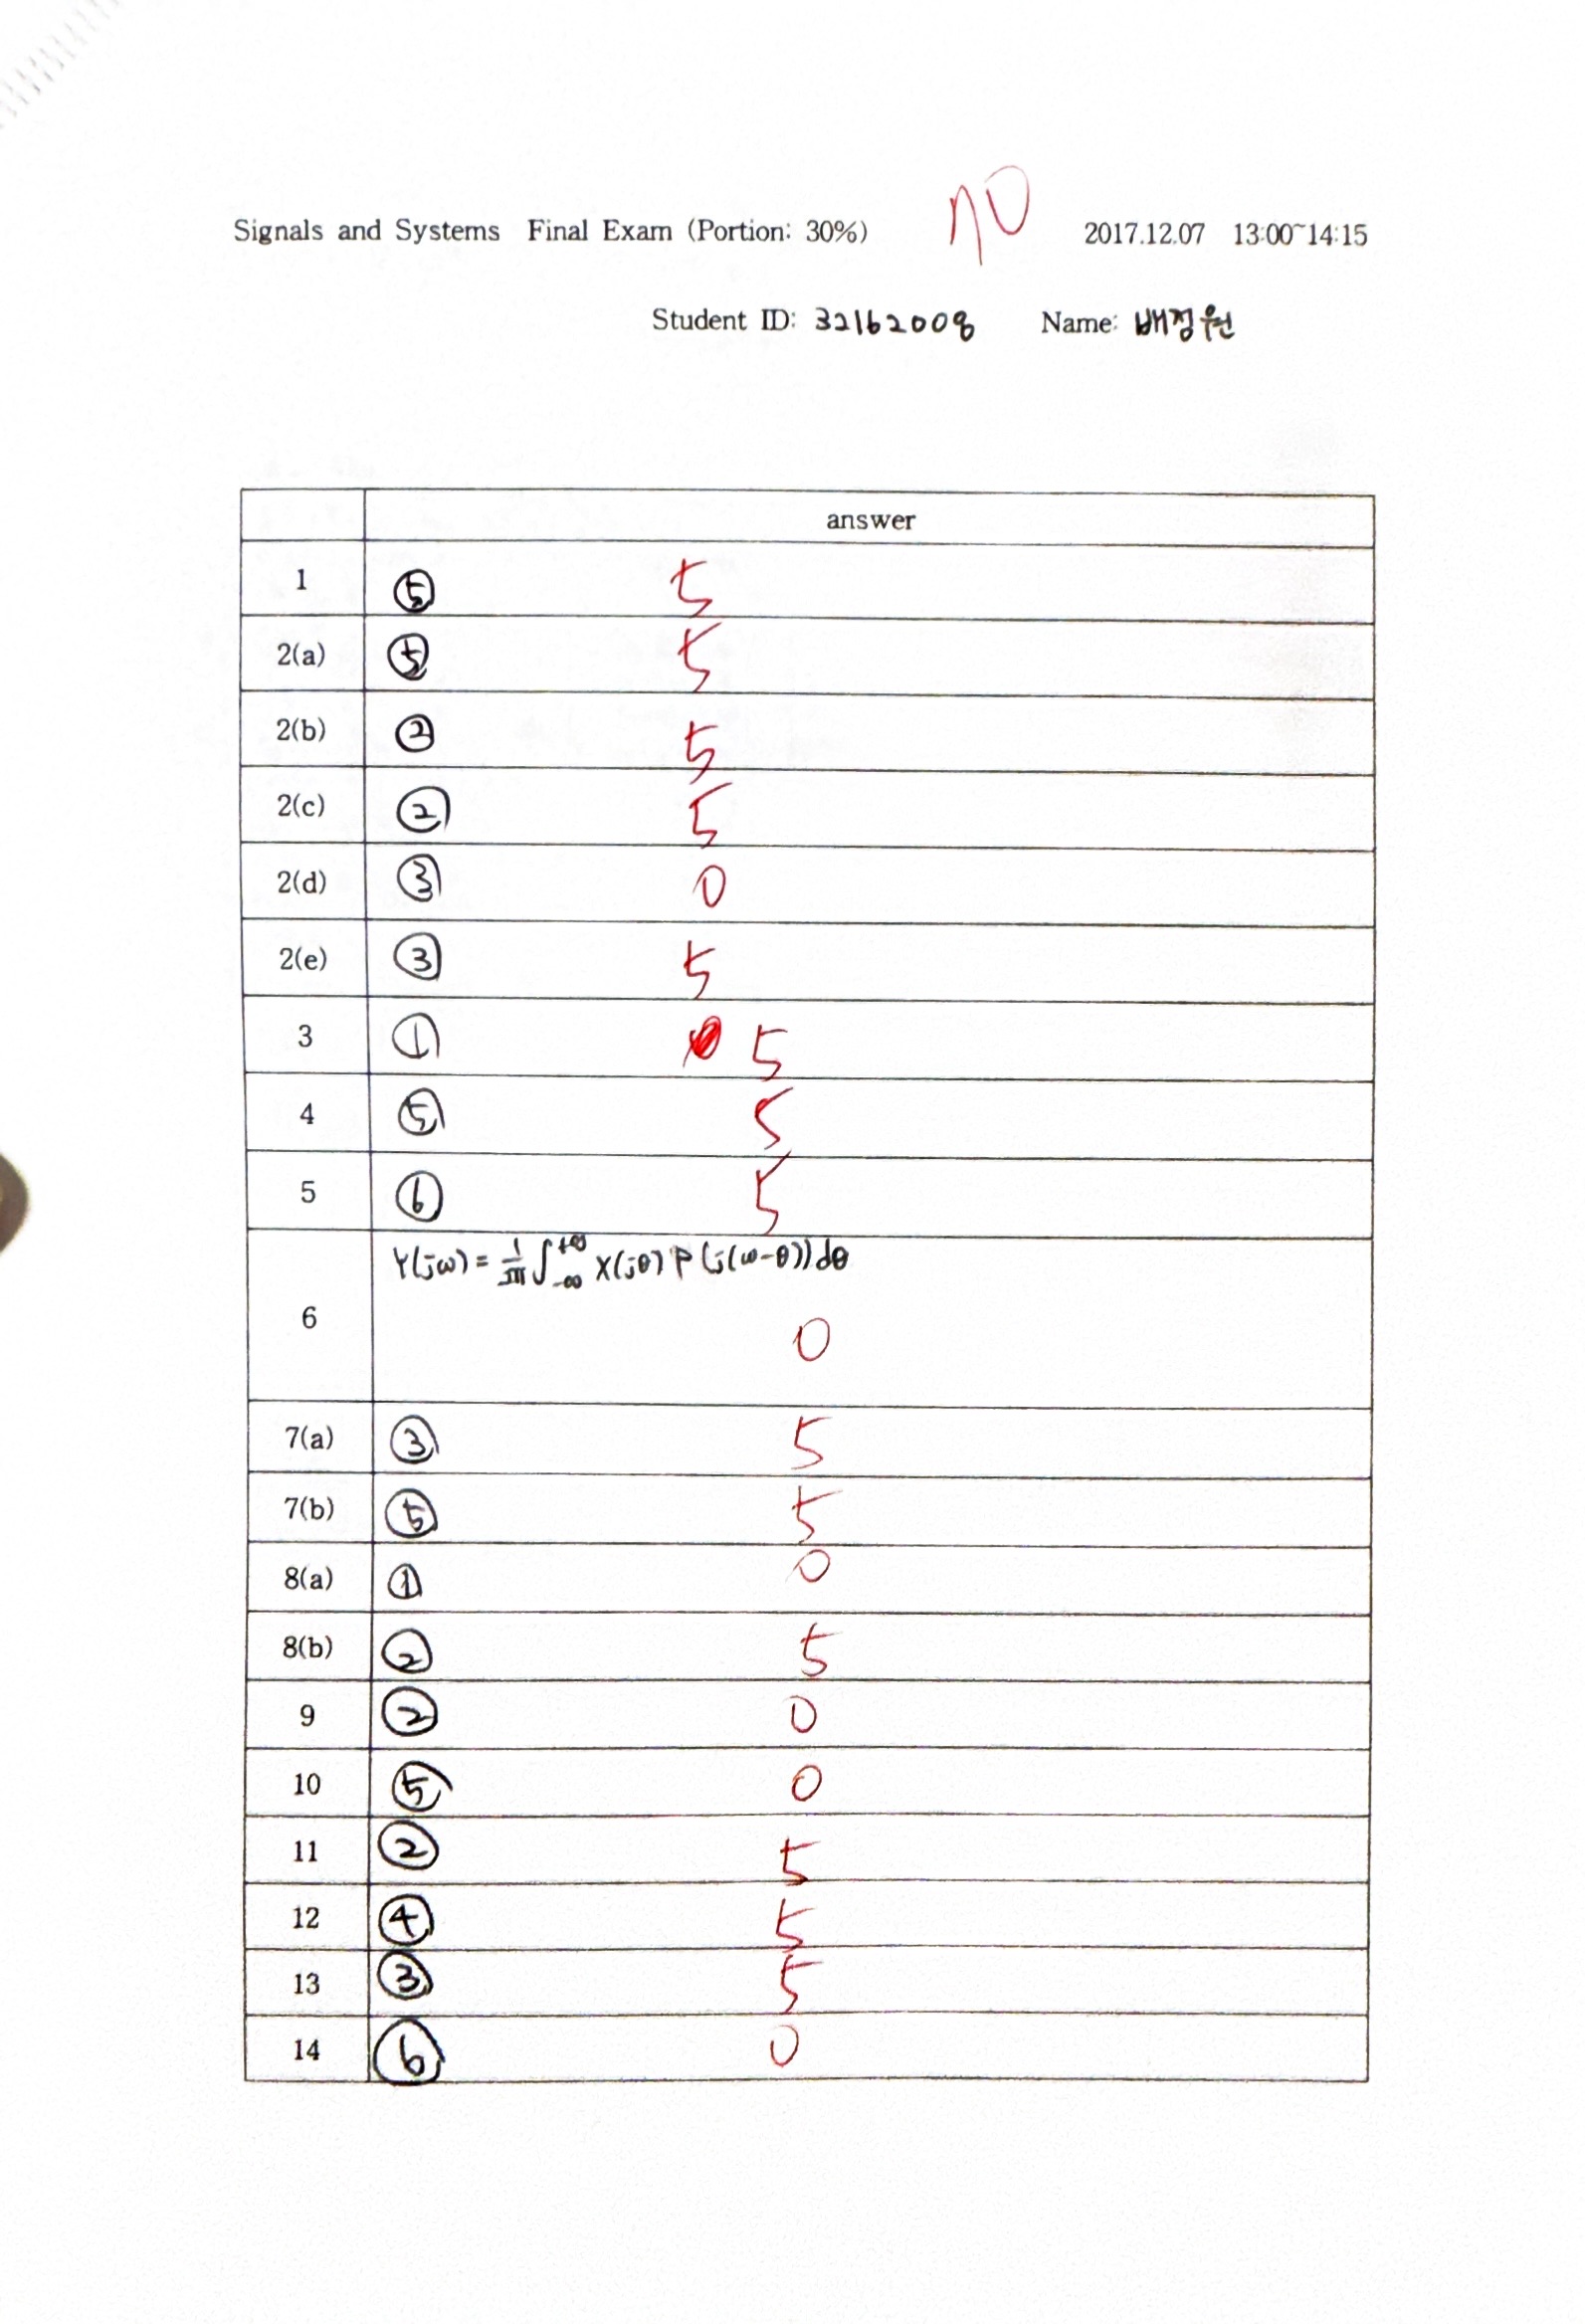 Signals and Systems Final Exam (Portion: 30%) 70 2017.12.07 13:00~14:15
Student ID: 32162008 Name: 배정원
answer
1 ⑤ 5
2(a) ⑤ 5
2(b) ② 5
2(c) ② 5
2(d) ③ 0
2(e) ③ 5
3 ① 5
4 ⑤ 5
5 ⑥ 5
Y(jω) = 1/2π ∫_{-∞}^{+∞} X(jθ) P(j(ω-θ)) dθ
6 0
7(a) ③ 5
7(b) ⑤ 5
8(a) ① 0
8(b) ② 5
9 ② 0
10 ⑤ 0
11 ② 5
12 ④ 5
13 ③ 5
14 ⑥ 0